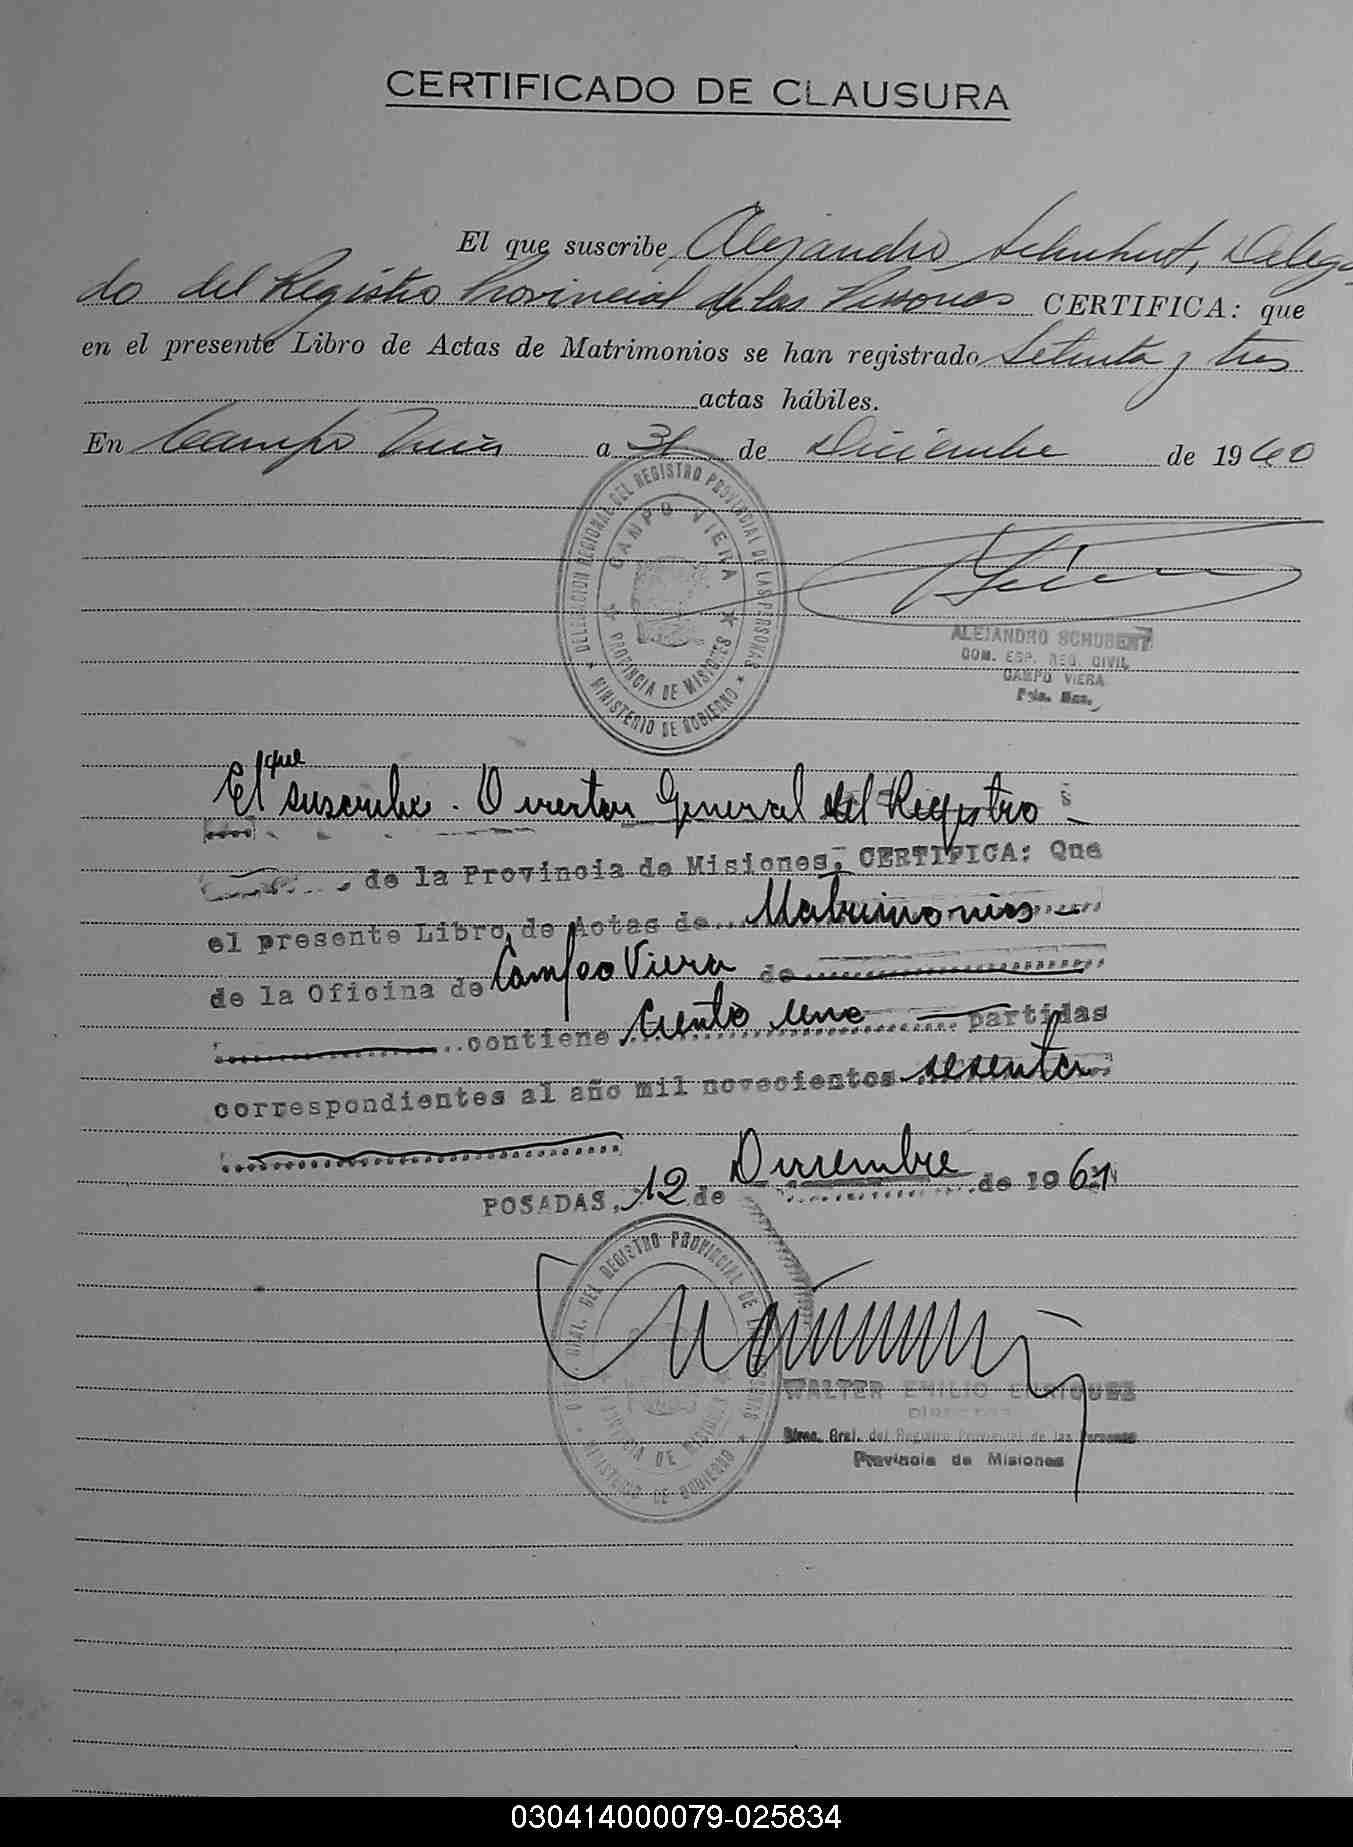 CERTIFICADO DE CLAUSURA
El que suscribe Alejandro Schubert, Delega
do del Registro Provincial de las Personas CERTIFICA: que
en el presente Libro de Actas de Matrimonios se han registrado Setenta y tres
actas hábiles.
En Campo Viera a 31 de Diciembre de 1960
DELEGACION REGIONAL DEL REGISTRO PROVINCIAL DE LAS PERSONAS
CAMPO VIERA
PROVINCIA DE MISIONES
MINISTERIO DE GOBIERNO
ALEJANDRO SCHUBERT
REG. CIVIL
CAMPO VIERA
El que suscribe. Director General del Registro
de la Provincia de Misiones, CERTIFICA: Que
el presente Libro de Actas de Matrimonios
de la Oficina de Campo Viera de
contiene Ciento una partidas
correspondientes al año mil novecientos sesenta
POSADAS, 12 de Diciembre de 1961
DEL REGISTRO PROVINCIAL DE LAS PERSONAS
PROVINCIA DE MISIONES
MINISTERIO DE GOBIERNO
WALTER EMILIO ENRIQUEZ
DIRECTOR
Direc. Gral. del Registro Provincial de las Personas
Provincia de Misiones
030414000079-025834